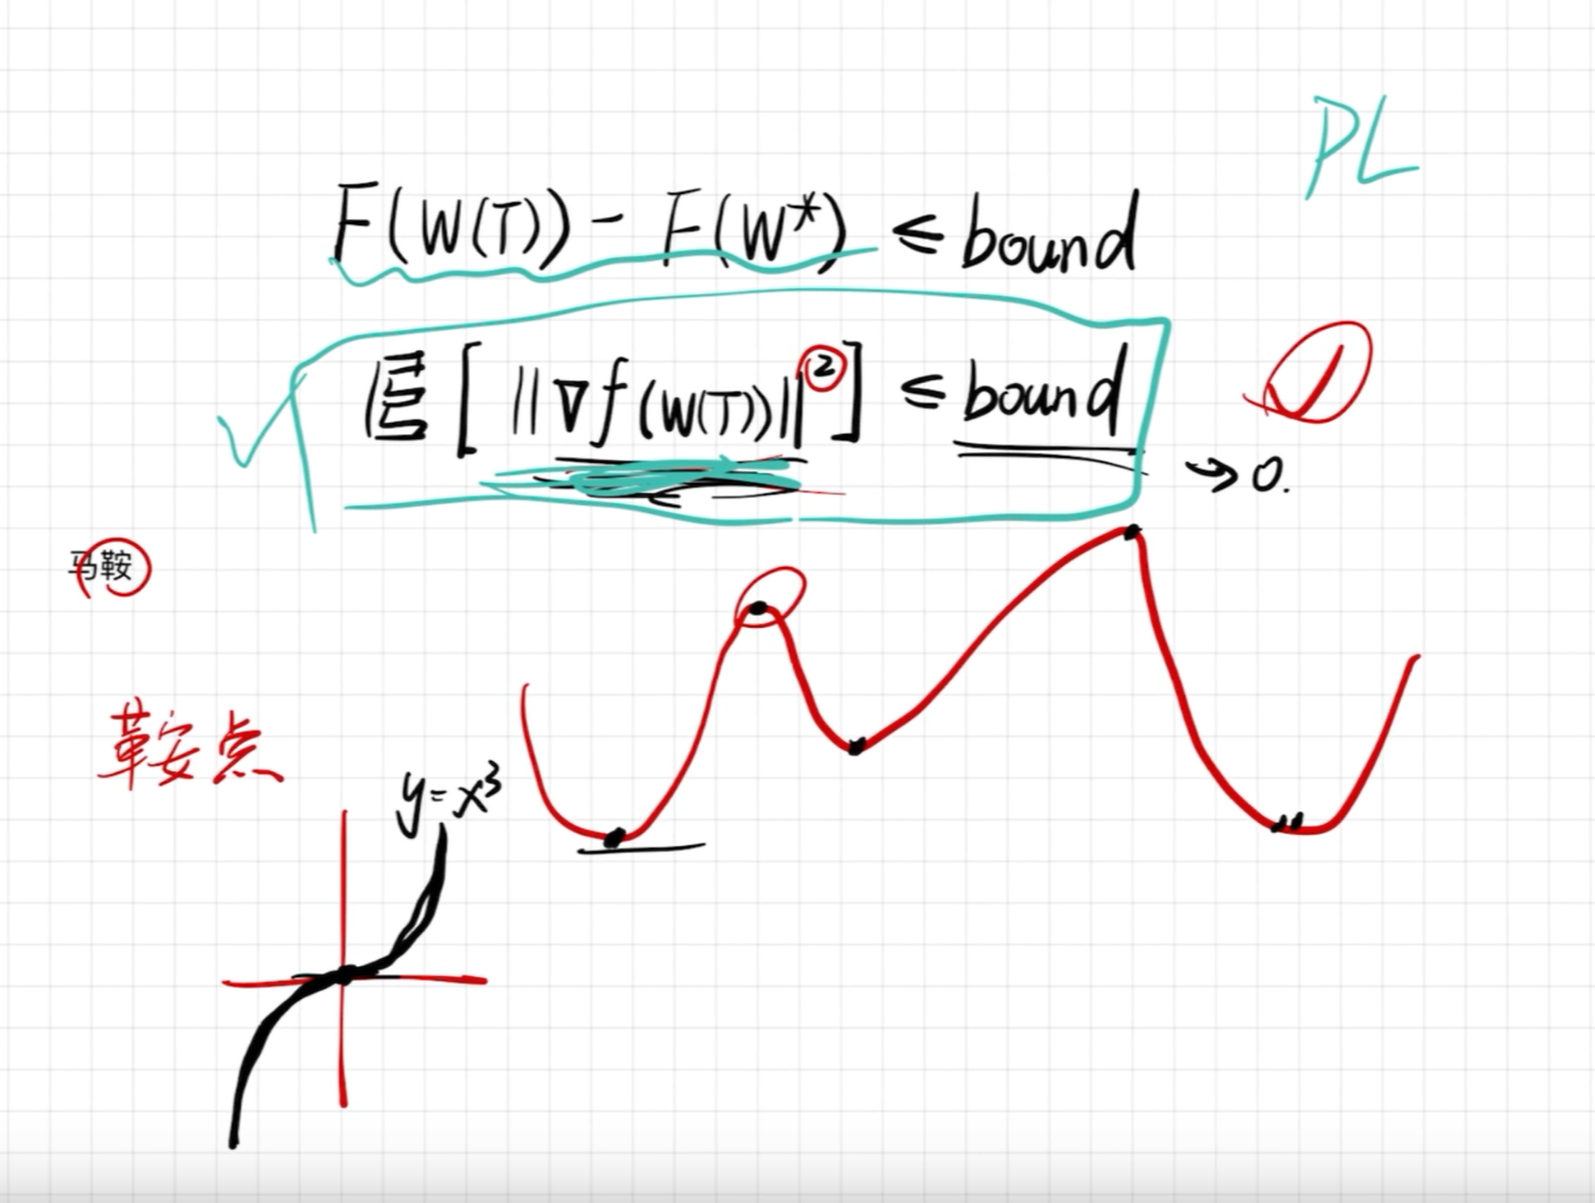 PL
F(W(T)) - F(W*) ≤ bound
𝔼[ ||∇f(W(T))||² ] ≤ bound
→ 0.
马鞍
鞍点
y=x³